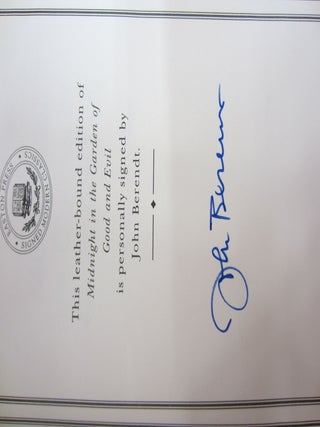 EASTON PRESS
MODERN CLASSICS
This leather-bound edition of
Midnight in the Garden of
Good and Evil
is personally signed by
John Berendt.
John Berendt